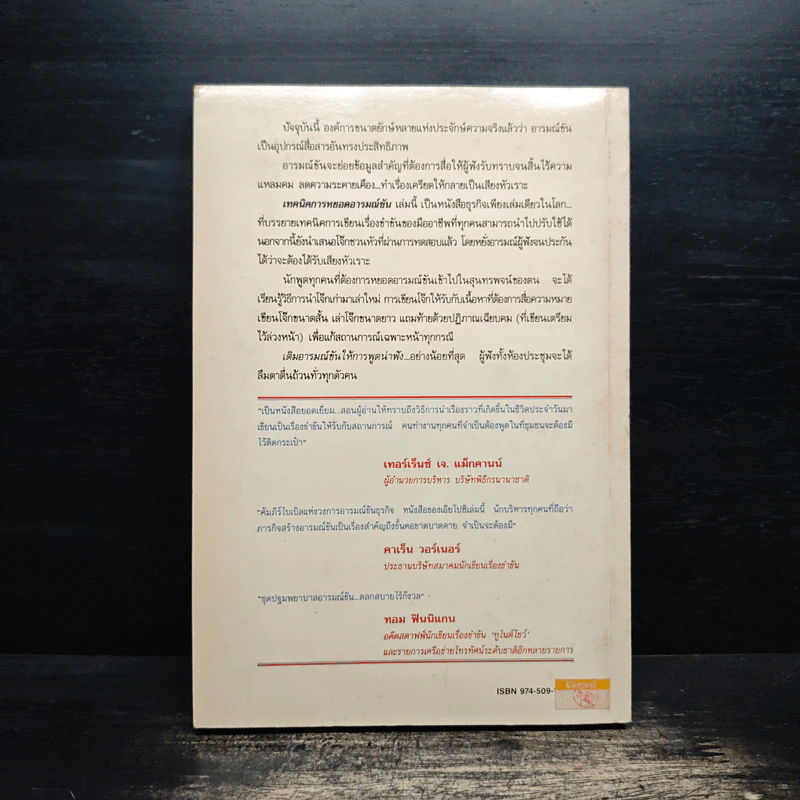 ปัจจุบันนี้ องค์การขนาดยักษ์หลายแห่งประจักษ์ความจริงแล้วว่า อารมณ์ขัน
เป็นอุปกรณ์สื่อสารอันทรงประสิทธิภาพ
อารมณ์ขันจะย่อยข้อมูลสำคัญที่ต้องการสื่อให้ผู้ฟังรับทราบจนสิ้นไร้ความ
แหลมคม ลดความระคายเคือง...ทำเรื่องเครียดให้กลายเป็นเสียงหัวเราะ
เทคนิคการหยอดอารมณ์ขัน เล่มนี้ เป็นหนังสือธุรกิจเพียงเล่มเดียวในโลก...
ที่บรรยายเทคนิคการเขียนเรื่องขำขันของมืออาชีพที่ทุกคนสามารถนำไปปรับใช้ได้
นอกจากนี้ยังนำเสนอโจ๊กชวนหัวที่ผ่านการทดสอบแล้ว โดยหยั่งอารมณ์ผู้ฟังจนประกัน
ได้ว่าจะต้องได้รับเสียงหัวเราะ
นักพูดทุกคนที่ต้องการหยอดอารมณ์ขันเข้าไปในสุนทรพจน์ของตน จะได้
เรียนรู้วิธีการนำโจ๊กเก่ามาเล่าใหม่ การเขียนโจ๊กให้รับกับเนื้อหาที่ต้องการสื่อความหมาย
เขียนโจ๊กขนาดสั้น เล่าโจ๊กขนาดยาว แถมท้ายด้วยปฏิภาณเฉียบคม (ที่เขียนเตรียม
ไว้ล่วงหน้า) เพื่อแก้สถานการณ์เฉพาะหน้าทุกกรณี
เติมอารมณ์ขันให้การพูดน่าฟัง...อย่างน้อยที่สุด ผู้ฟังทั้งห้องประชุมจะได้
ลืมตาตื่นถ้วนทั่วทุกตัวคน
"เป็นหนังสือยอดเยี่ยม...สอนผู้อ่านให้ทราบถึงวิธีการนำเรื่องราวที่เกิดขึ้นในชีวิตประจำวันมา
เขียนเป็นเรื่องขำขันให้รับกับสถานการณ์ คนทำงานทุกคนที่จำเป็นต้องพูดในที่ชุมชนจะต้องมี
ไว้ติดกระเป๋า"
เทอร์เร็นซ์ เจ. แม็กคานน์
ผู้อำนวยการบริหาร บริษัทพิธีกรนานาชาติ
"คัมภีร์ไบเบิลแห่งวงการอารมณ์ขันธุรกิจ หนังสือของเอียโปซีเล่มนี้ นักบริหารทุกคนที่ถือว่า
ภารกิจสร้างอารมณ์ขันเป็นเรื่องสำคัญถึงขั้นคอขาดบาดตาย จำเป็นจะต้องมี"
คาเร็น วอร์เนอร์
ประธานบริษัทสมาคมนักเขียนเรื่องขำขัน
"ชุดปฐมพยาบาลอารมณ์ขัน...ตลกสบายไร้กังวล"
ทอม ฟินนิแกน
อดีตสตาฟฟ์นักเขียนเรื่องขำขัน 'ทูไนต์โชว์'
และรายการเครือข่ายโทรทัศน์ระดับชาติอีกหลายรายการ
ISBN 974-509-